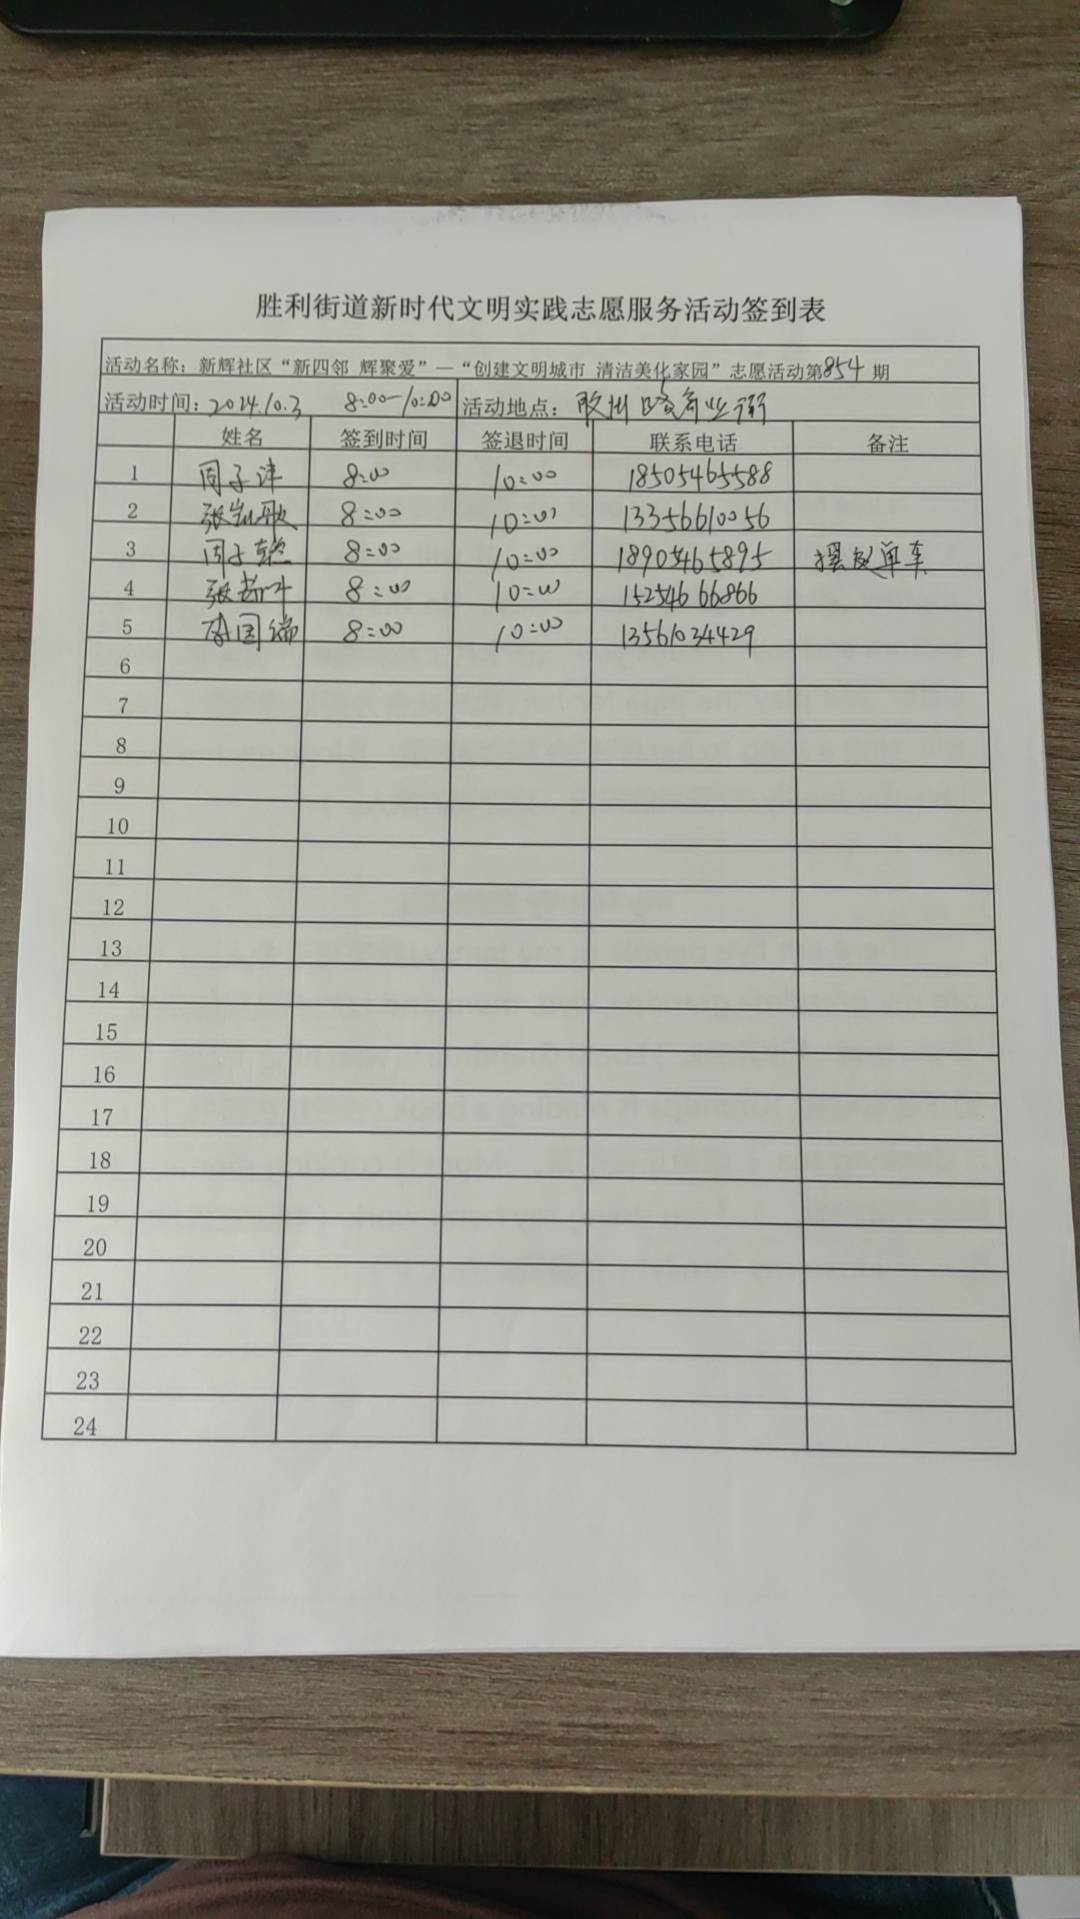 胜利街道新时代文明实践志愿服务活动签到表
活动名称：新辉社区“新四邻 辉聚爱”—“创建文明城市 清洁美化家园”志愿活动第854期
活动时间：2024.10.3 8:00-10:00 活动地点：胶州路商业街
姓名 签到时间 签退时间 联系电话 备注
1 周子津 8:00 10:00 18505465588
2 张凯歌 8:00 10:00 13356610056
3 周子 8:00 10:00 18905465895 摆放单车
4 张 8:00 10:00 15254666866
5 李国瑞 8:00 10:00 13561034429
6
7
8
9
10
11
12
13
14
15
16
17
18
19
20
21
22
23
24